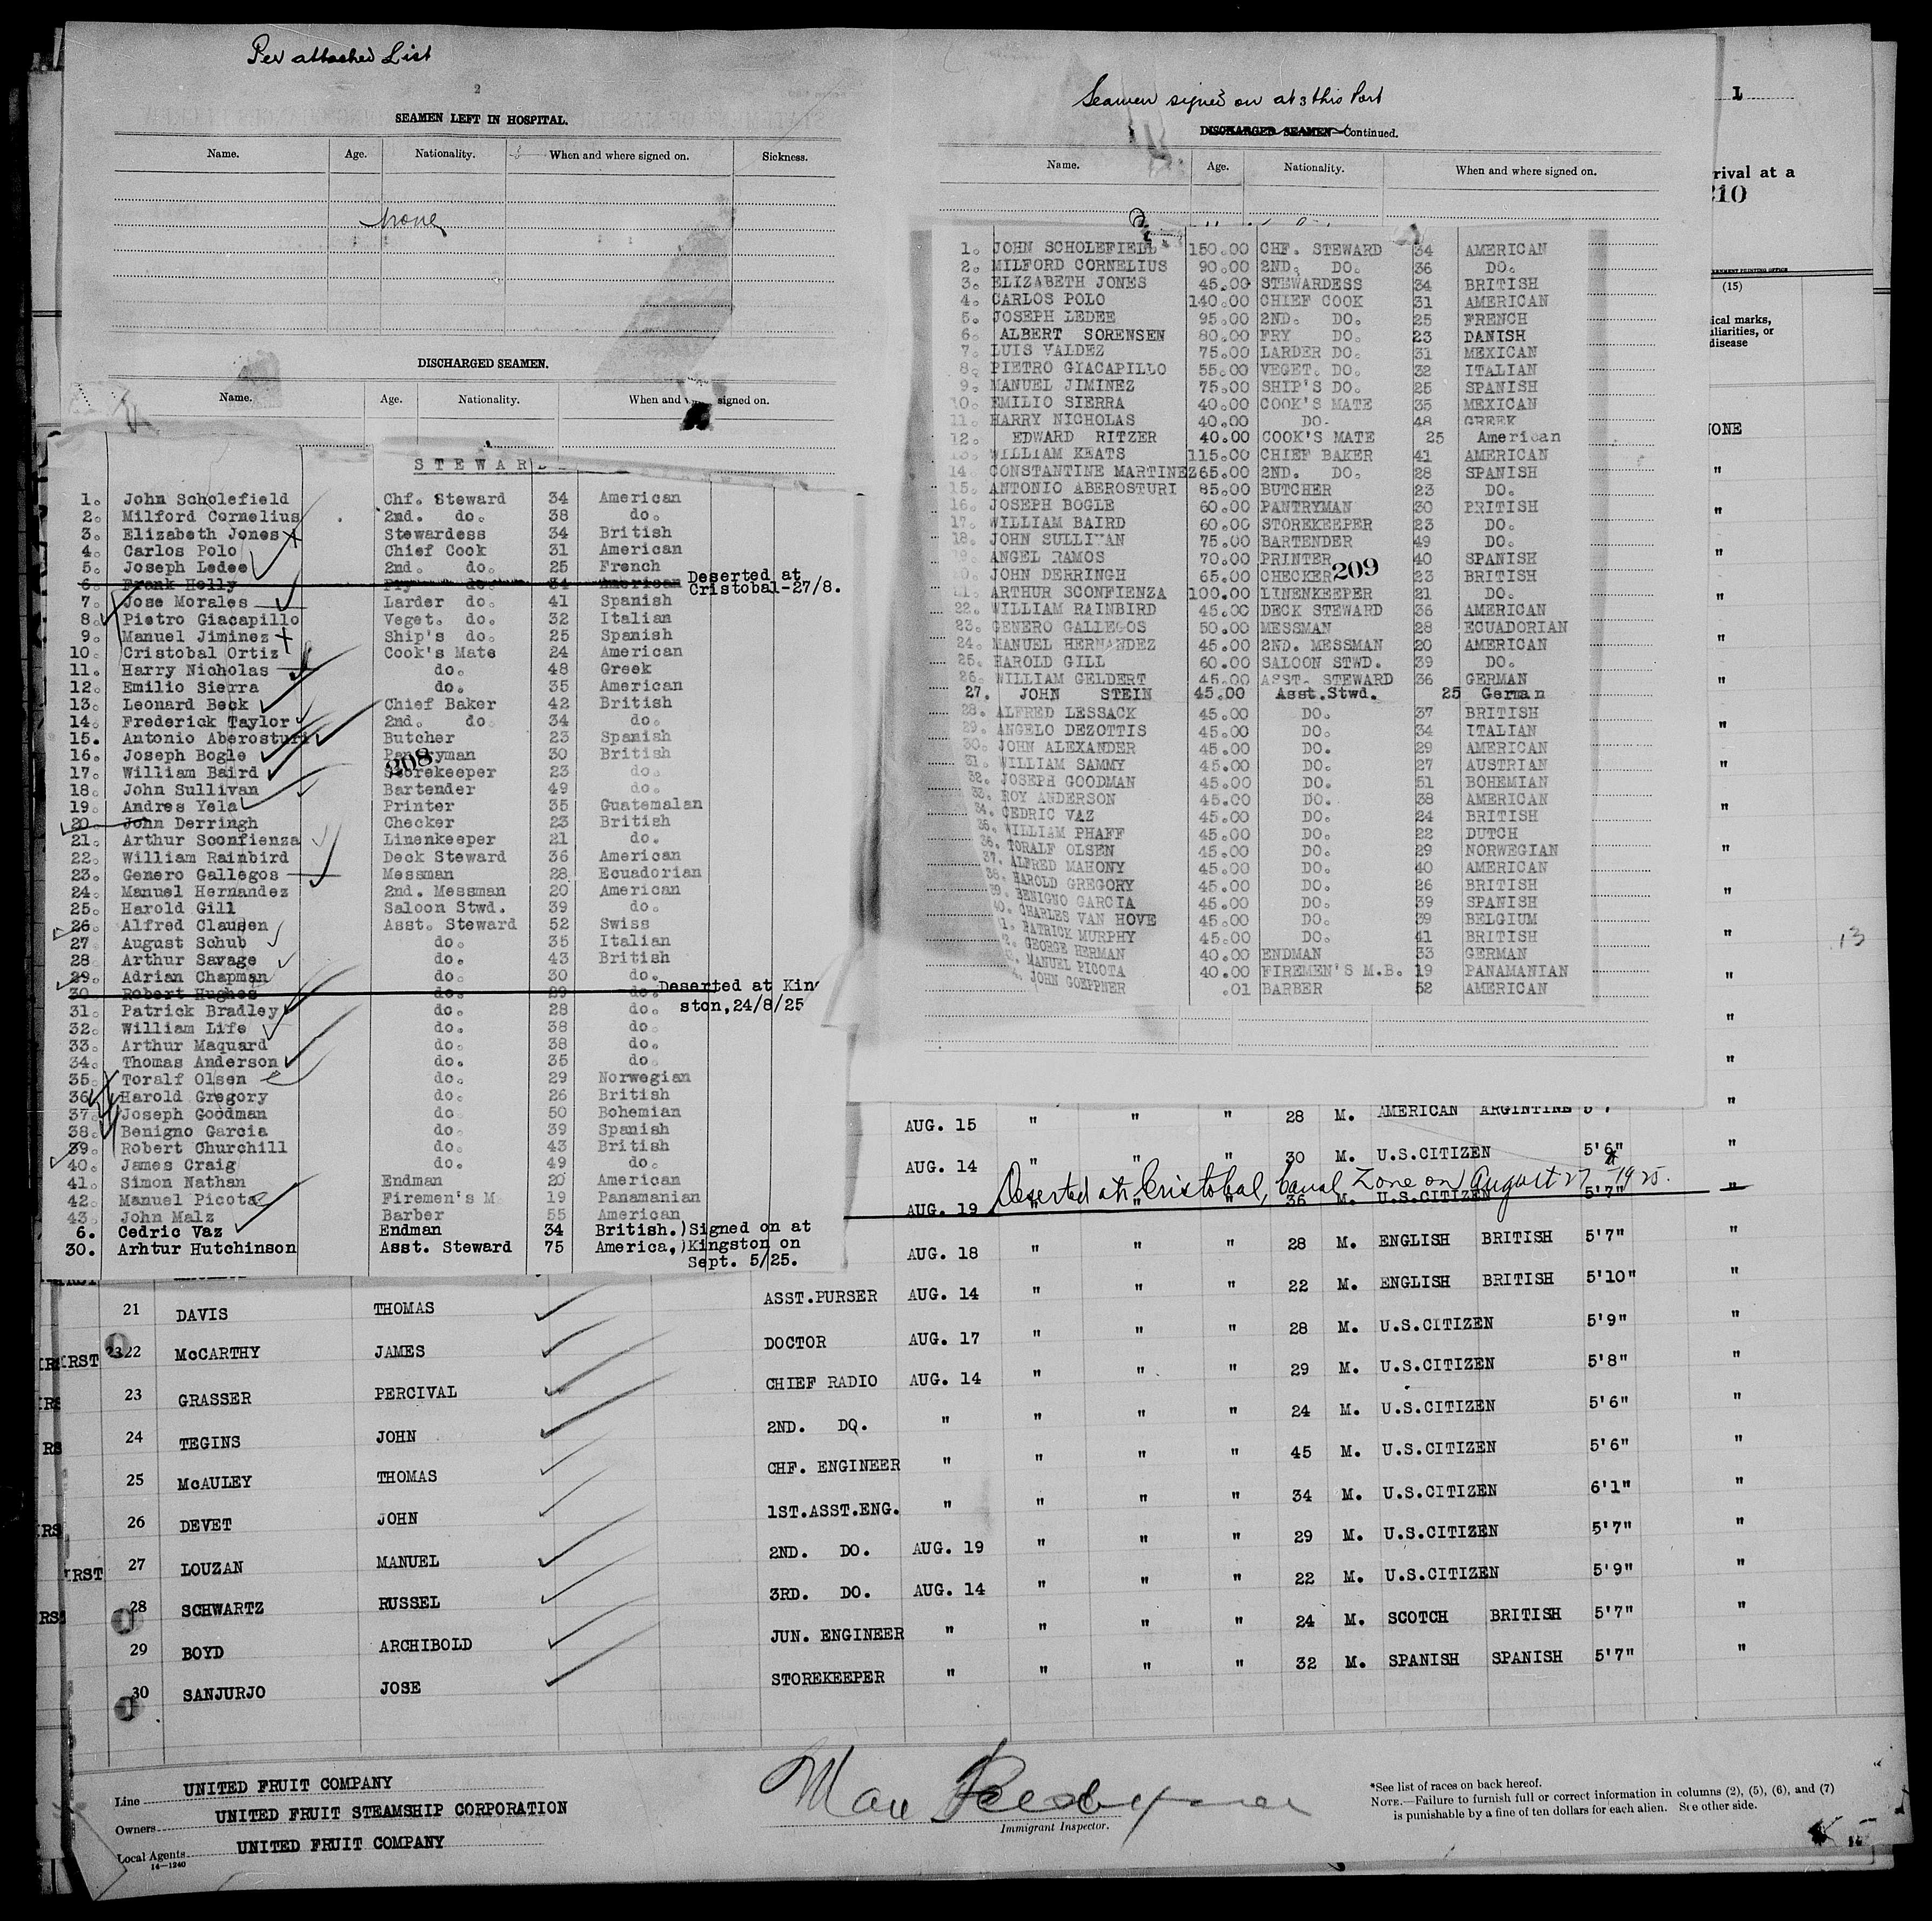 Per attached List
2
SEAMEN LEFT IN HOSPITAL.
Name. Age. Nationality. When and where signed on. Sickness.
None
DISCHARGED SEAMEN.
Name. Age. Nationality. When and signed on.
STEWAR
1. John Scholefield Chf. Steward 34 American
2. Milford Cornelius 2nd. do. 38 do.
3. Elizabeth Jones Stewardess 34 British
4. Carlos Polo Chief Cook 31 American
5. Joseph Ledee 2nd. do. 25 French
6. Frank Helly Fry do. 34 American Deserted at
Cristobal-27/8.
7. Jose Morales Larder do. 41 Spanish
8. Pietro Giacapillo Veget. do. 32 Italian
9. Manuel Jiminez Ship's do. 25 Spanish
10. Cristobal Ortiz Cook's Mate 24 American
11. Harry Nicholas do. 48 Greek
12. Emilio Sierra do. 35 American
13. Leonard Beck Chief Baker 42 British
14. Frederick Taylor 2nd. do 34 do.
15. Antonio Aberosturi Butcher 23 Spanish
16. Joseph Bogle Pantryman 30 British
208
17. William Baird Storekeeper 23 do.
18. John Sullivan Bartender 49 do.
19. Andres Yela Printer 35 Guatemalan
20. John Derringh Checker 23 British
21. Arthur Sconfienza Linenkeeper 21 do.
22. William Rainbird Deck Steward 36 American
23. Genero Gallegos Messman 28 Ecuadorian
24. Manuel Hernandez 2nd. Messman 20 American
25. Harold Gill Saloon Stwd. 39 do.
26. Alfred Clausen Asst. Steward 52 Swiss
27. August Schub do. 35 Italian
28 Arthur Savage do. 43 British
29. Adrian Chapman do. 30 do.
30. Robert Hughes do. 29 do. Deserted at King
ston,24/8/25
31. Patrick Bradley do. 28 do.
32. William Life do. 38 do.
33. Arthur Maquard do. 38 do.
34. Thomas Anderson do. 35 do.
35. Toralf Olsen do. 29 Norwegian
36. Harold Gregory do. 26 British
37. Joseph Goodman do 50 Bohemian
38. Benigno Garcia do. 39 Spanish
39. Robert Churchill do. 43 British
40. James Craig do. 49 do.
41. Simon Nathan Endman 20 American
42. Manuel Picota Firemen's M 19 Panamanian
43. John Malz Barber 55 American
6. Cedric Vaz Endman 34 British.)Signed on at
30. Arhtur Hutchinson Asst. Steward 75 America,)Kingston on
Sept. 5/25.
Seamen signed on at this Port
3
DISCHARGED SEAMEN—Continued.
Name. Age. Nationality. When and where signed on.
1. JOHN SCHOLEFIELD 150.00 CHF. STEWARD 34 AMERICAN
2. MILFORD CORNELIUS 90.00 2ND. DO. 36 DO.
3. ELIZABETH JONES 45.00 STEWARDESS 34 BRITISH
4. CARLOS POLO 140.00 CHIEF COOK 31 AMERICAN
5. JOSEPH LEDEE 95.00 2ND. DO. 25 FRENCH
6. ALBERT SORENSEN 80.00 FRY DO. 23 DANISH
7. LUIS VALDEZ 75.00 LARDER DO. 31 MEXICAN
8. PIETRO GIACAPILLO 55.00 VEGET. DO. 32 ITALIAN
9. MANUEL JIMINEZ 75.00 SHIP'S DO. 25 SPANISH
10. EMILIO SIERRA 40.00 COOK'S MATE 35 MEXICAN
11. HARRY NICHOLAS 40.00 DO. 48 GREEK
12. EDWARD RITZER 40.00 COOK'S MATE 25 American
13. WILLIAM KEATS 115.00 CHIEF BAKER 41 AMERICAN
14. CONSTANTINE MARTINEZ 65.00 2ND. DO. 28 SPANISH
15. ANTONIO ABEROSTURI 85.00 BUTCHER 23 DO.
16. JOSEPH BOGLE 60.00 PANTRYMAN 30 PRITISH
17. WILLIAM BAIRD 60.00 STOREKEEPER 23 DO.
18. JOHN SULLIVAN 75.00 BARTENDER 49 DO.
19. ANGEL RAMOS 70.00 PRINTER 40 SPANISH
20. JOHN DERRINGH 65.00 CHECKER 209 23 BRITISH
21. ARTHUR SCONFIENZA 100.00 LINENKEEPER 21 DO.
22. WILLIAM RAINBIRD 45.00 DECK STEWARD 36 AMERICAN
23. GENERO GALLEGOS 50.00 MESSMAN 28 ECUADORIAN
24. MANUEL HERNANDEZ 45.00 2ND. MESSMAN 20 AMERICAN
25. HAROLD GILL 60.00 SALOON STWD. 39 DO.
26. WILLIAM GELDERT 45.00 ASST. STEWARD 36 GERMAN
27. JOHN STEIN 45.00 Asst.Stwd. 25 German
28. ALFRED LESSACK 45.00 DO. 37 BRITISH
29. ANGELO DEZOTTIS 45.00 DO. 34 ITALIAN
30. JOHN ALEXANDER 45.00 DO. 29 AMERICAN
31. WILLIAM SAMMY 45.00 DO. 27 AUSTRIAN
32. JOSEPH GOODMAN 45.00 DO. 51 BOHEMIAN
33. ROY ANDERSON 45.00 DO. 38 AMERICAN
34. CEDRIC VAZ 45.00 DO. 24 BRITISH
35. WILLIAM PHAFF 45.00 DO. 22 DUTCH
36. TORALF OLSEN 45.00 DO. 29 NORWEGIAN
37. ALFRED MAHONY 45.00 DO. 40 AMERICAN
38. HAROLD GREGORY 45.00 DO. 26 BRITISH
39. BENIGNO GARCIA 45.00 DO. 39 SPANISH
40. CHARLES VAN HOVE 45.00 DO. 39 BELGIUM
1. PATRICK MURPHY 45.00 DO. 41 BRITISH
2. GEORGE HERMAN 40.00 ENDMAN 33 GERMAN
3. MANUEL PICOTA 40.00 FIREMEN'S M.B. 19 PANAMANIAN
4. JOHN GOEPPNER .01 BARBER 52 AMERICAN
1
rival at a
210
(15)
ical marks,
uliarities, or
disease
NONE
13
AUG. 15 " " " 28 M. AMERICAN ARGINTINE 5'7" "
AUG. 14 " " " 30 M. U.S.CITIZEN 5'6" "
Deserted at Cristobal, Canal Zone on August 27 1925.
AUG. 19 " " " 36 M. U.S.CITIZEN 5'7" "
AUG. 18 " " " 28 M. ENGLISH BRITISH 5'7" "
21 DAVIS THOMAS ASST.PURSER AUG. 14 " " " 22 M. ENGLISH BRITISH 5'10" "
22 McCARTHY JAMES DOCTOR AUG. 17 " " " 28 M. U.S.CITIZEN 5'9" "
23 GRASSER PERCIVAL CHIEF RADIO AUG. 14 " " " 29 M. U.S.CITIZEN 5'8" "
24 TEGINS JOHN 2ND. DO. " " " " 24 M. U.S.CITIZEN 5'6" "
25 McAULEY THOMAS CHF. ENGINEER " " " " 45 M. U.S.CITIZEN 5'6" "
26 DEVET JOHN 1ST.ASST.ENG. " " " " 34 M. U.S.CITIZEN 6'1" "
27 LOUZAN MANUEL 2ND. DO. AUG. 19 " " " 29 M. U.S.CITIZEN 5'7" "
28 SCHWARTZ RUSSEL 3RD. DO. AUG. 14 " " " 22 M. U.S.CITIZEN 5'9" "
29 BOYD ARCHIBOLD JUN. ENGINEER " " " " 24 M. SCOTCH BRITISH 5'7" "
30 SANJURJO JOSE STOREKEEPER " " " " 32 M. SPANISH SPANISH 5'7" "
Line UNITED FRUIT COMPANY
Owners UNITED FRUIT STEAMSHIP CORPORATION
Local Agents UNITED FRUIT COMPANY
14—1240
Immigrant Inspector.
*See list of races on back hereof.
NOTE.—Failure to furnish full or correct information in columns (2), (5), (6), and (7)
is punishable by a fine of ten dollars for each alien. See other side.